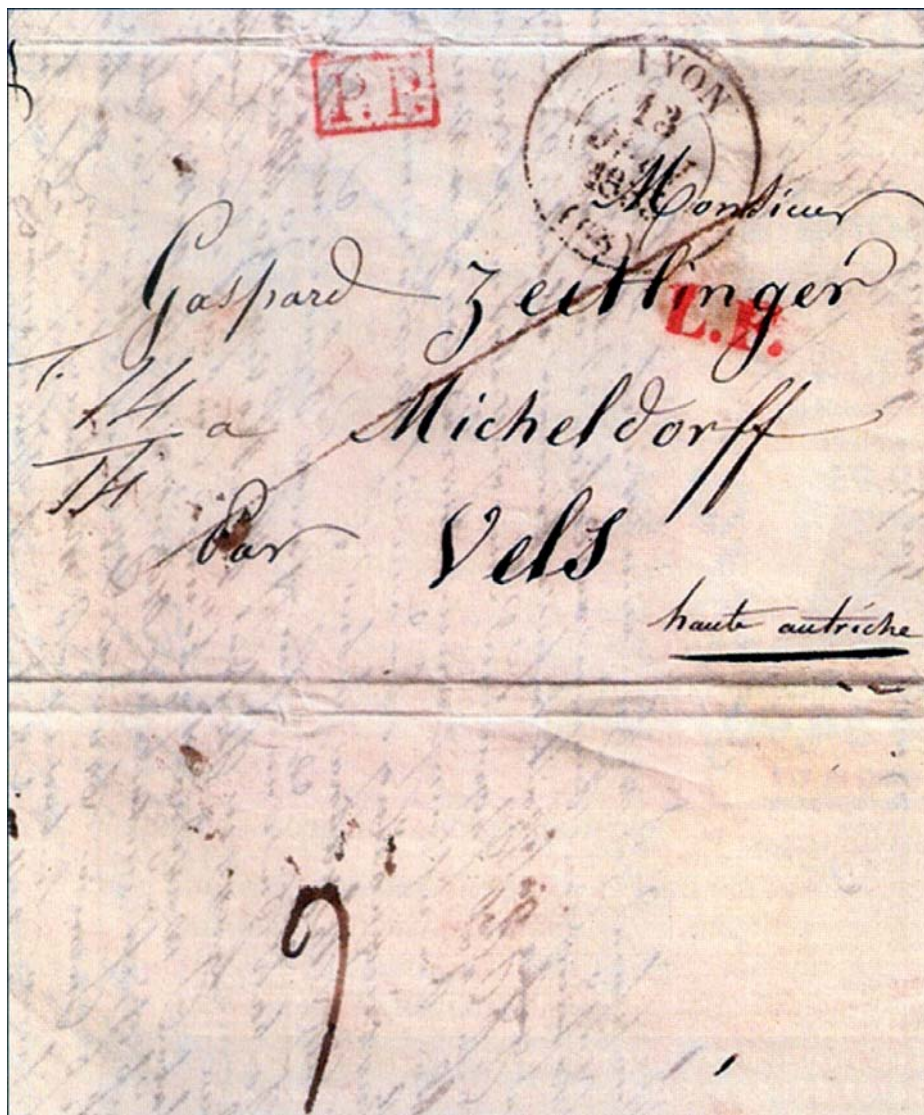 P.P.
LYON
13
Monsieur
Gaspard Zeitlinger
L.F.
14
14
a Micheldorff
Par Vels
haute autriche
9